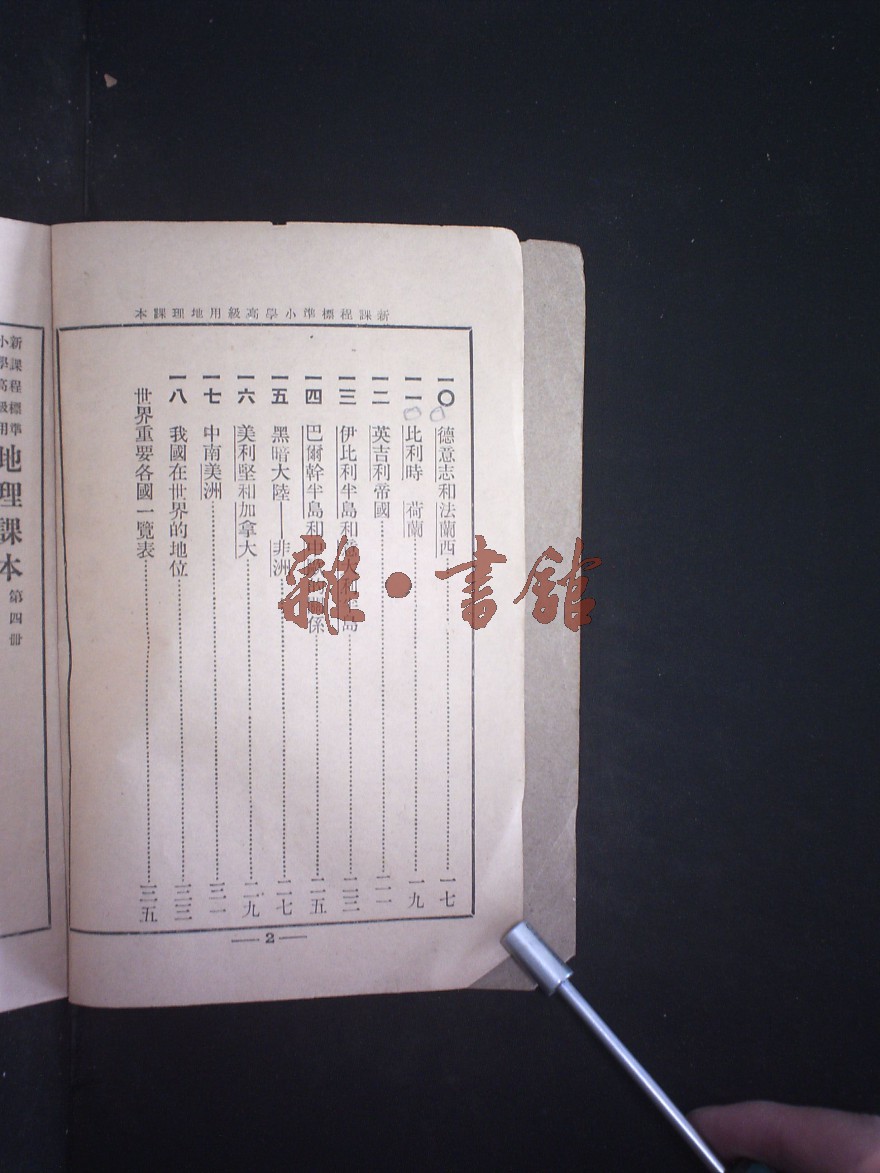 新課程標準小學高級用地理課本
一〇 德意志和法蘭西 一七
一一 比利時 荷蘭……一九
一二 英吉利帝國……二一
一三 伊比利半島和大利半島……二三
一四 巴爾幹半島和中歐的關係……二五
一五 黑暗大陸——非洲……二七
一六 美利堅和加拿大……二九
一七 中南美洲……三一
一八 我國在世界的地位……三三
世界重要各國一覽表……三五
— 2 —
新課程標準
小學高級用
地理課本 第四冊
雜·書館